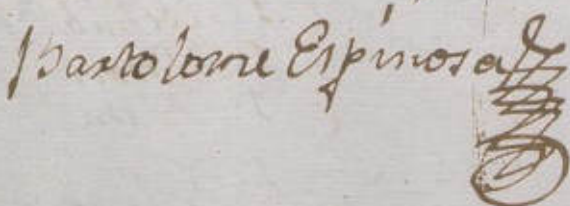 Bartolome Espinosa